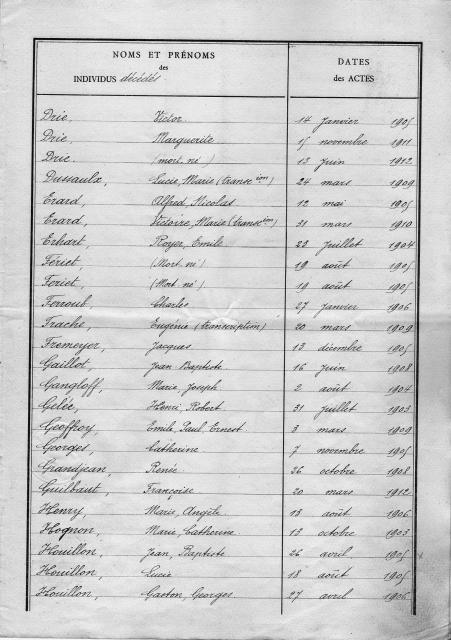 NOMS ET PRÉNOMS DATES
des
INDIVIDUS décédés. des ACTES
Drie, Victor 14 janvier 1905
Drie, Marguerite 15 novembre 1911
Drie, (mort, né) 13 juin 1912
Dussaulx, Lucie, Marie (transc ion) 24 mars 1909
Erard, Alfred, Nicolas 12 mai 1905
Erard, Victoire, Marie (transc tion) 31 mars 1910
Erhart, Royer, Emile 23 juillet 1904
Fériet (Mort-né) 19 août 1905
Feriet, (Mort-né) 19 août 1905
Ferroul, Charles 27 janvier 1906
Frache, Eugénie (transcription) 20 mars 1909
Fremeyer, Jacques 13 décembre 1905
Gaillot, Jean Baptiste 16 juin 1908
Gangloff, Marie, Joseph 2 août 1904
Gelée, Henri, Robert 31 juillet 1903
Geoffroy, Emile, Paul, Ernest 3 mars 1909
Georges, Catherine 7 novembre 1905
Grandjean, Renée 26 octobre 1908
Guilbaut, Françoise 20 mars 1912
Henry, Marie, Angèle 13 août 1906
Hognon, Marie, Catherine 13 octobre 1903
Houillon, Jean, Baptiste 26 avril 1905
Houillon, Lucie 18 août 1905
Houillon, Gaston, Georges 27 avril 1906